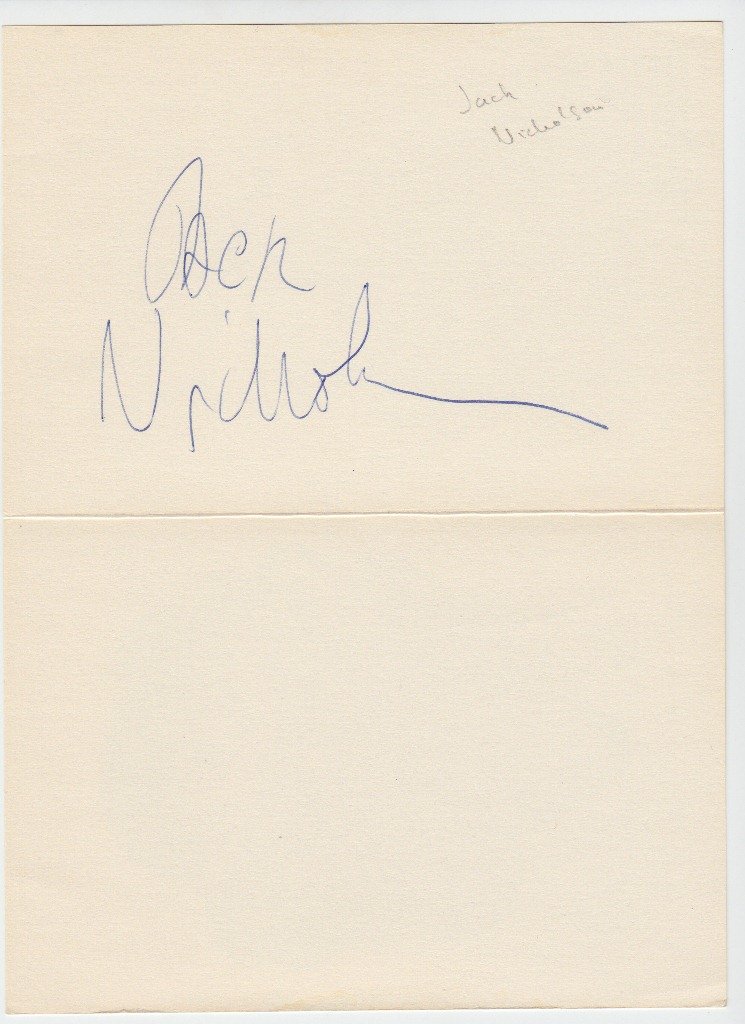 Jack
Nicholson
Jack
Nichols